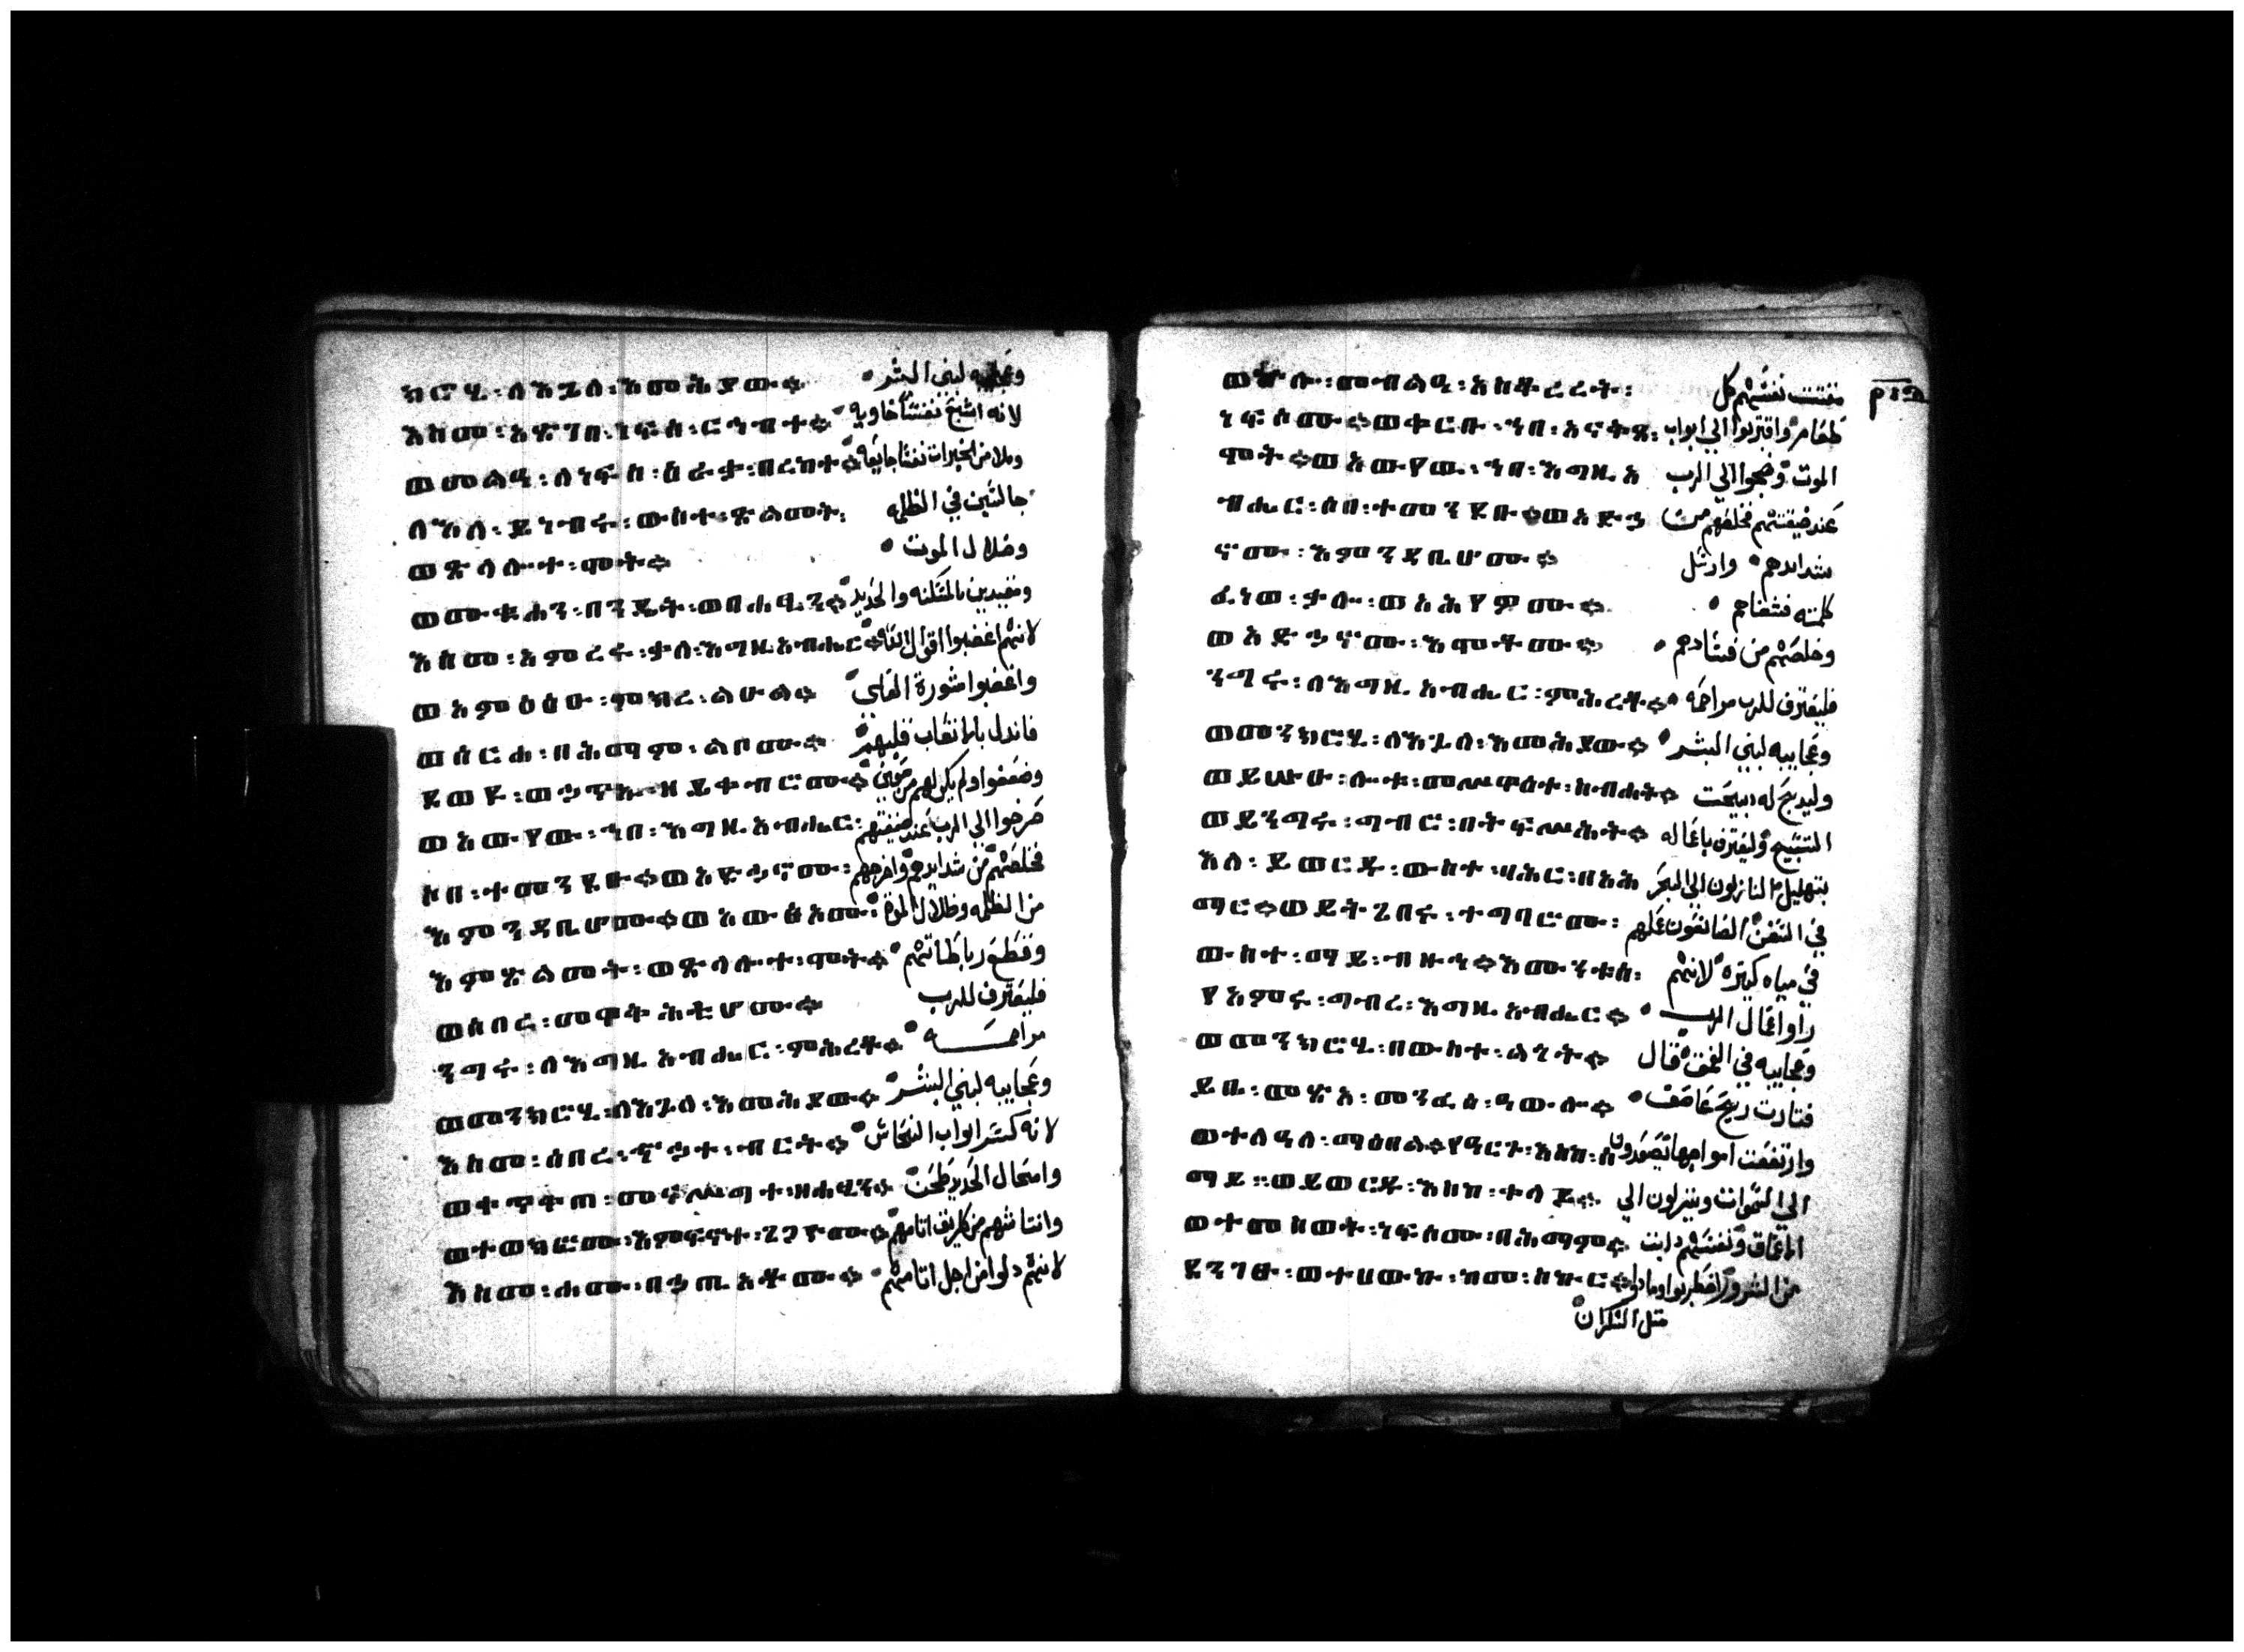 ክርሂ፡ለእጓለ፡እመሕያው። وعجايبه لبني البشر
እስመ፡አጽገበ፡ነፍሰ፡ርኅብተ። لانه اشبع نفسًا خاويه
ወመልዐ፡ለነፍስ፡ዕራቃ፡በረከተ። وملا من الخيرات نفسا جايعه
ለእለ፡ይነብሩ፡ውስተ፡ጽልመት፡ جالسين في الظلمه
ወጽላሎተ፡ሞት። وضلال الموت
ወሙቁሓን፡በንዴት፡ወበሐፂን። ومقيدين بالمسكنه والحديد
እስመ፡አምረሩ፡ቃለ፡እግዚአብሔር። لانهم اغضبوا اقوال الله
ወአምዐዑ፡ምክረ፡ልዑል። واغضبوا مشورة العلي
ወሰርሐ፡በሕማም፡ልቦሙ። فاندل بالاتعاب قلبهم
ደወዩ፡ወኃጥኡ፡ዘይቀብሮሙ። وضعفوا ولم يكن لهم من معين
ወአውየዉ፡ኀበ፡እግዚአብሔር፡ صرخوا الي الرب عند ضيقتهم
ሶበ፡ተመንደቡ።ወአድኃኖሙ፡ فخلصهم من شدايدهم واخرجهم
እምንዳቤሆሙ።ወአውፅኦሙ፡ من الظلمه وظلال الموت
እምጽልመት፡ወጽላሎተ፡ሞት። وقطع رباطاتهم
ወሰበረ፡መዋቅሕቲሆሙ። فليعترف للرب
ንግሩ፡ለእግዚአብሔር፡ምሕረቶ። مراحمه
ወመንክሮሂ፡ለእጓለ፡እመሕያው። وعجايبه لبني البشر
እስመ፡ሰበረ፡ኆኃተ፡ብርት። لانه كسر ابواب النحاس
ወቀጥቀጠ፡መናሥግተ፡ዘሐፂን። وامحال الحديد طحن
ወተወክፎሙ፡እምፍኖተ፡ጌጋዮሙ። وانتاشهم من طريق اتامهم
እስመ፡ሐሙ፡በኃጢአቶሙ። لانهم دلوا من اجل اتامهم
ወ ሎ፡መብልዒ፡አስቆረረት፡ مقتت نفسهم كل
ነፍሶሙ።ወቀርቡ፡ኀበ፡አናቅጸ፡ طعام واقتربوا الي ابواب
ሞት።ወአውየዉ፡ኀበ፡እግዚአ الموت وضجوا الي الرب
ብሔር፡ሶበ፡ተመንደቡ።ወአድኃ عند ضيقتهم فخلصهم من
ኖሙ፡እምንዳቤሆሙ። شدايدهم وارسل
ፈነወ፡ቃሎ፡ወአሕየዎሙ። كلمته فشفاهم
ወአድኃኖሙ፡እሞቶሙ። وخلصهم من فسادهم
ንግሩ፡ለእግዚአብሔር፡ምሕረቶ። فليعترف للرب مراحمه
ወመንክሮሂ፡ለእጓለ፡እመሕያው። وعجايبه لبني البشر
ወይሡዑ፡ሎቱ፡መሥዋዕተ፡ስብሐት። وليدبح له دبيحت
ወይንግሩ፡ግብሮ፡በትፍሥሕት። التسبيح وليعترف باعماله
እለ፡ይወርዱ፡ውስተ፡ባሕር፡በአሕ بتهليل النازلون الي البحر
ማር።ወይትጌበሩ፡ተግባሮሙ፡ في السفن الصانعون عملهم
ውስተ፡ማይ፡ብዙኅ።እሙንቱሰ፡ في مياه كثيره لانهم
የአምሩ፡ግብረ፡እግዚአብሔር። رأوا اعمال الرب
ወመንክሮሂ፡በውስተ፡ልጐት። وعجايبه في العمق قال
ይቤ፡መጽአ፡መንፈሰ፡ዐውሎ። فثارت ريح عاصف
ወተለዓለ፡ማዕበል።የዓርጉ፡እስከ፡ሰ وارتفعت امواجها يصعدون
ማይ።ወይወርዱ፡እስከ፡ቀላይ። الي السموات وينزلون الي
ወተመስወት፡ነፍሶሙ፡በሕማሞ። الاعماق ونفسهم دابت
ደንገፁ፡ወተሀውኩ፡ከመ፡ስኩር። من الشرور اضطربوا ومادوا
مثل السكران